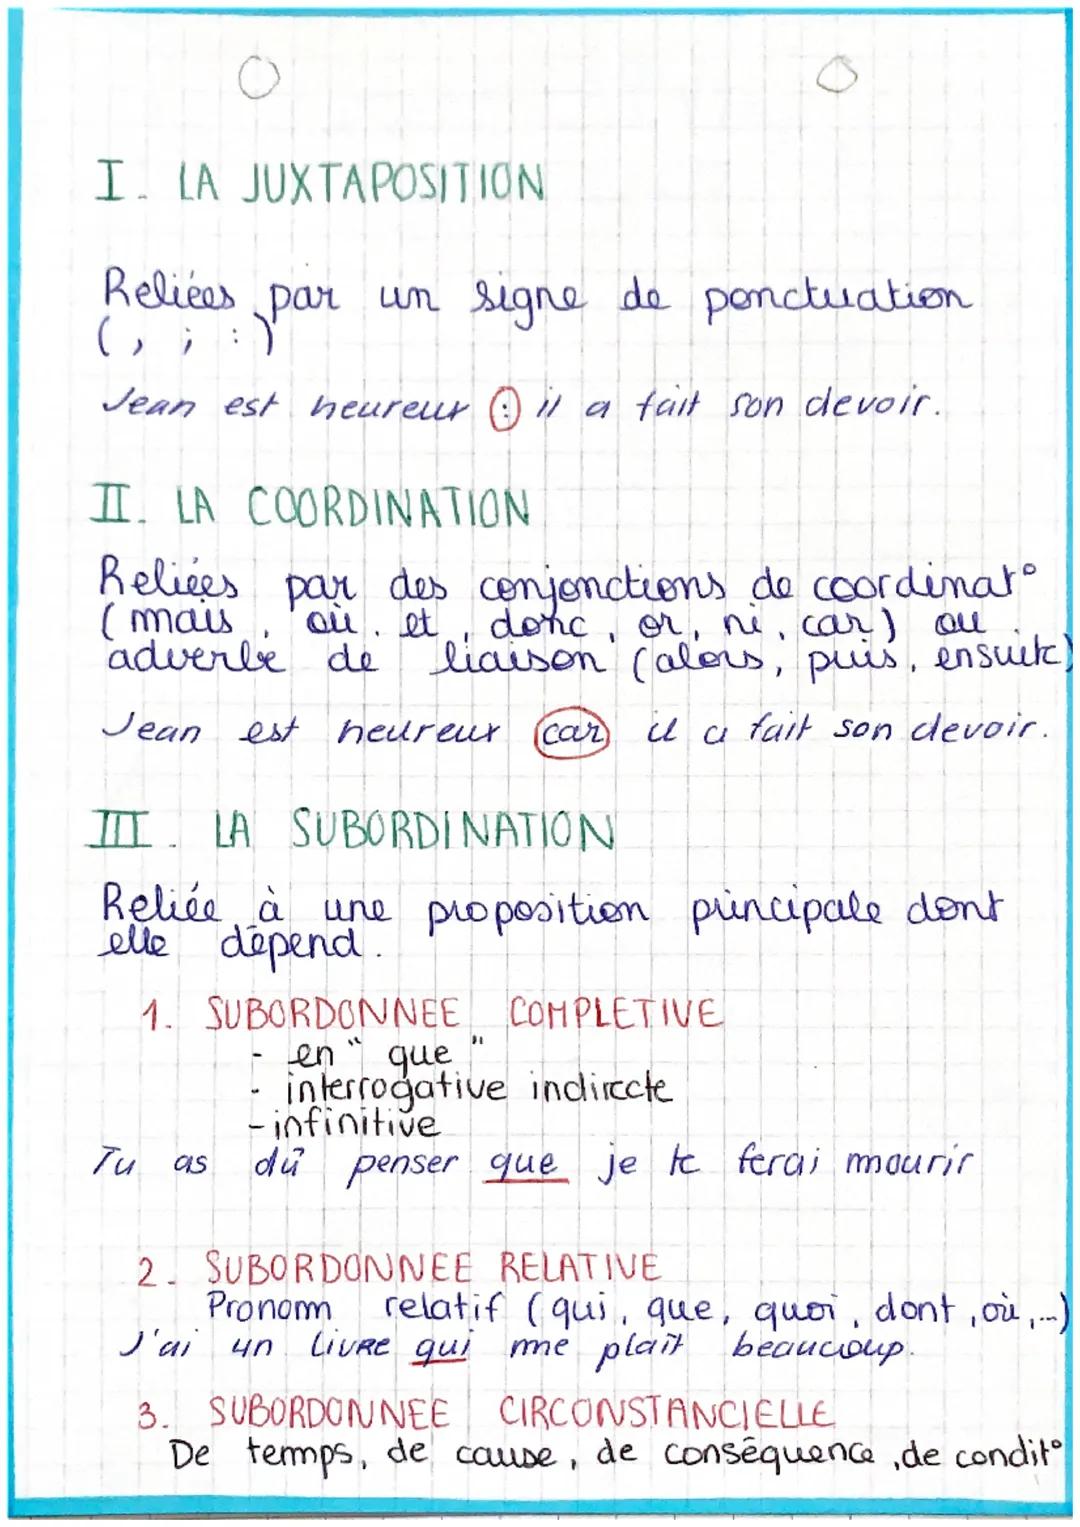 I. LA JUXTAPOSITION
Reliées par un signe de ponctuation
( , ; : )
Jean est heureux : il a fait son devoir.
II. LA COORDINATION
Reliées par des conjonctions de coordinat°
(mais, où, et, donc, or, ni, car) ou
adverbe de liaison (alors, puis, ensuite)
Jean est heureux car il a fait son devoir.
III. LA SUBORDINATION
Reliée à une proposition principale dont
elle dépend.
1. SUBORDONNEE COMPLETIVE
- en " que "
- interrogative indirecte
- infinitive
Tu as dû penser que je te ferai mourir
2. SUBORDONNEE RELATIVE
Pronom relatif (qui, que, quoi, dont, où,...)
J'ai un livre qui me plaît beaucoup.
3. SUBORDONNEE CIRCONSTANCIELLE
De temps, de cause, de conséquence, de condit°